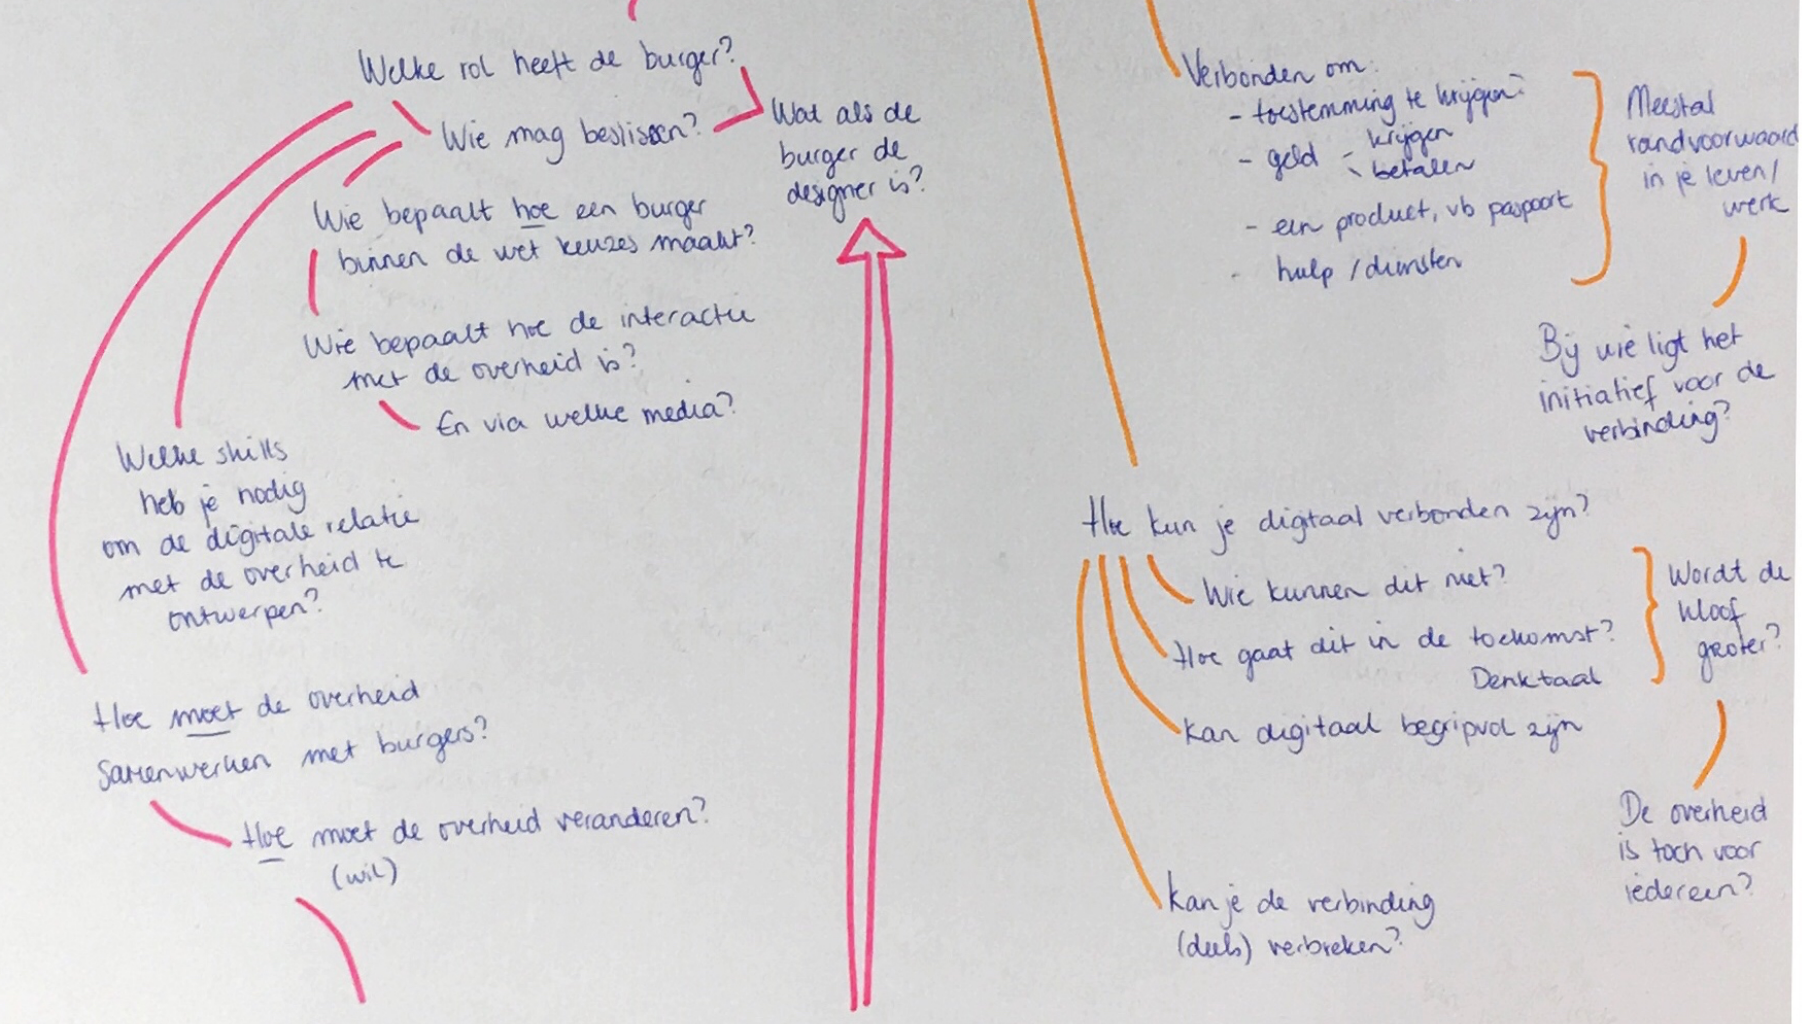 Welke rol heeft de burger?
Wie mag beslissen?
Wat als de
burger de
designer is?
Wie bepaalt hoe een burger
binnen de wet keuzes maakt?
Wie bepaalt hoe de interactie
met de overheid is?
En via welke media?
Welke skills
heb je nodig
om de digitale relatie
met de overheid te
ontwerpen?
Hoe moet de overheid
samenwerken met burgers?
Hoe moet de overheid veranderen?
(wil)
Verbonden om:
- toestemming te krijgen?
- geld - krijgen
- betalen
- een product, vb paspoort
- hulp / diensten
Meestal
randvoorwaard
in je leven/
werk
Bij wie ligt het
initiatief voor de
verbinding?
Hoe kun je digitaal verbonden zijn?
Wie kunnen dit niet?
Hoe gaat dit in de toekomst?
Denktaal
Kan digitaal begripvol zijn
Wordt de
kloof
groter?
De overheid
is toch voor
iedereen?
Kan je de verbinding
(deels) verbreken?